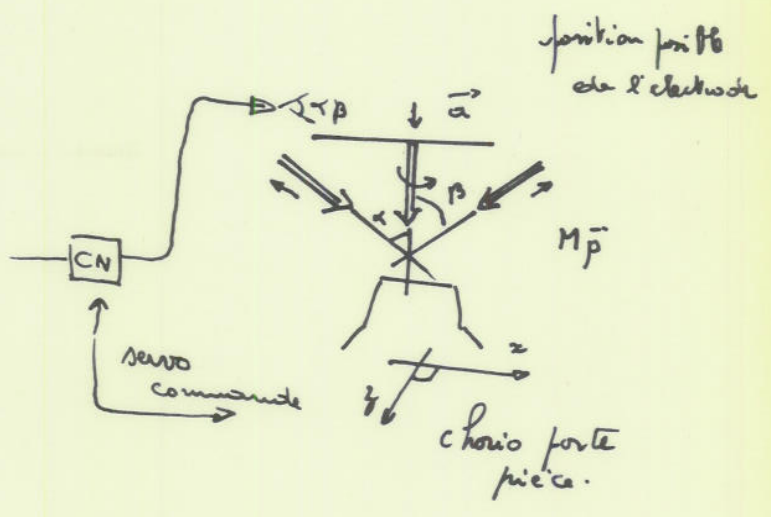 position possible
de l'electrode
α β
a
β
α
M p
CN
servo
commande
x
y
chario porte
pièce.